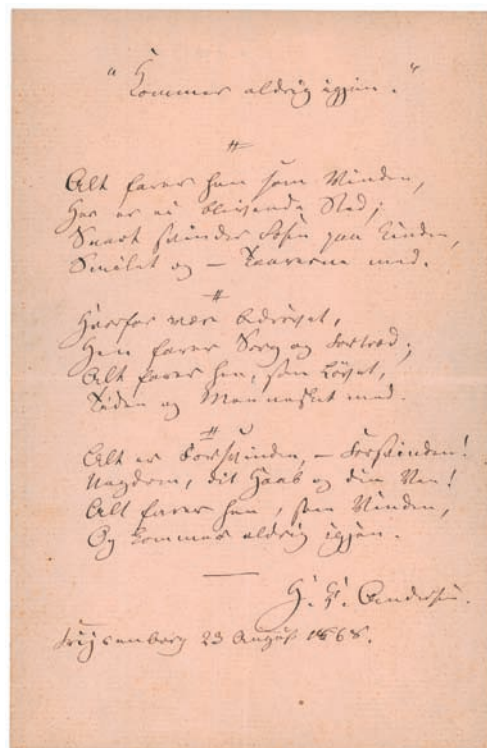 "Kommer aldrig igjen."
Alt farer hen som Vinden,
Her er ei blivende Sted;
Snart svinder Rosen paa Kinden,
Smilet og – Taarerne med.
Hvorfor være bedrøvet,
Hen farer Sorg og Fortræd;
Alt farer hen, som Løvet,
Tiden og Mennesket med.
Alt er Forsvinden, – Forsvinden!
Ungdom, dit Haab og din Ven!
Alt farer hen, som Vinden,
Og kommer aldrig igjen.
H. C. Andersen.
Frijsenborg 23 August 1868.